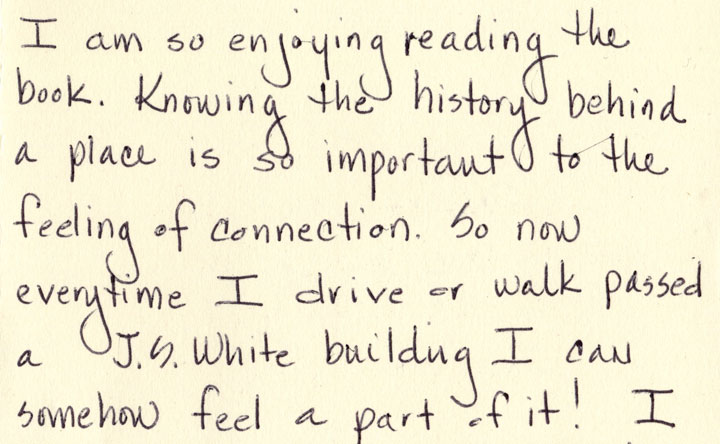 I am so enjoying reading the
book. Knowing the history behind
a place is so important to the
feeling of connection. So now
everytime I drive or walk passed
a J.S. White buildng I can
somehow feel a part of it! I